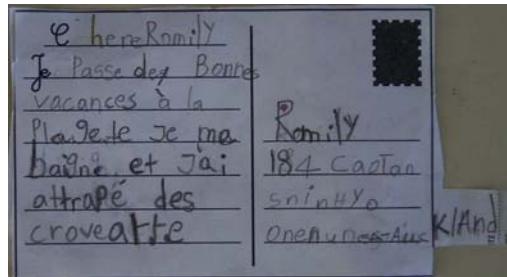 Chere Romily
Je Passe des Bonnes
vacances à la
Plage te Je me
baigne et Jai
attrapé des
crovearte
Romily
184 CapTan
sninHyo